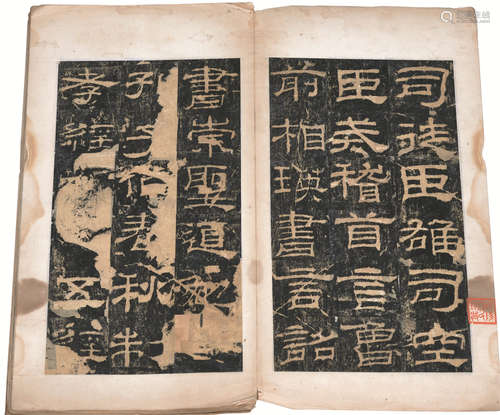 司徒臣雄司空
臣戒稽首言魯
前相瑛書言詔
書崇聖道
孔子作春秋制
孝經五經